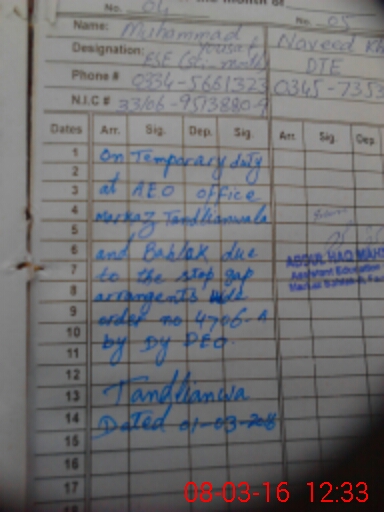 the month of
No. 04 No. 05
Name: Muhammad Yousaf Naveed Kh
Designation: ESE (Sci-math) DTE
Phone # 0334-5661323 0345-7353
N.I.C # 33106-9513880-9
Dates Arr. Sig. Dep. Sig. Arr. Sig. Dep.
1 On Temporary duty
2
3 at AEO office
4 markaz Tandlianwala
5
6 and Bahlak due
7 to the stop gap
8 arrangents vide
9 order no 4706-A
10 by Dy DEO.
11
12
13 Tandlianwa
14 Dated 01-03-2016
15
16
17
ABDUL HAQ MAH
Assistant Education
08-03-16 12:33